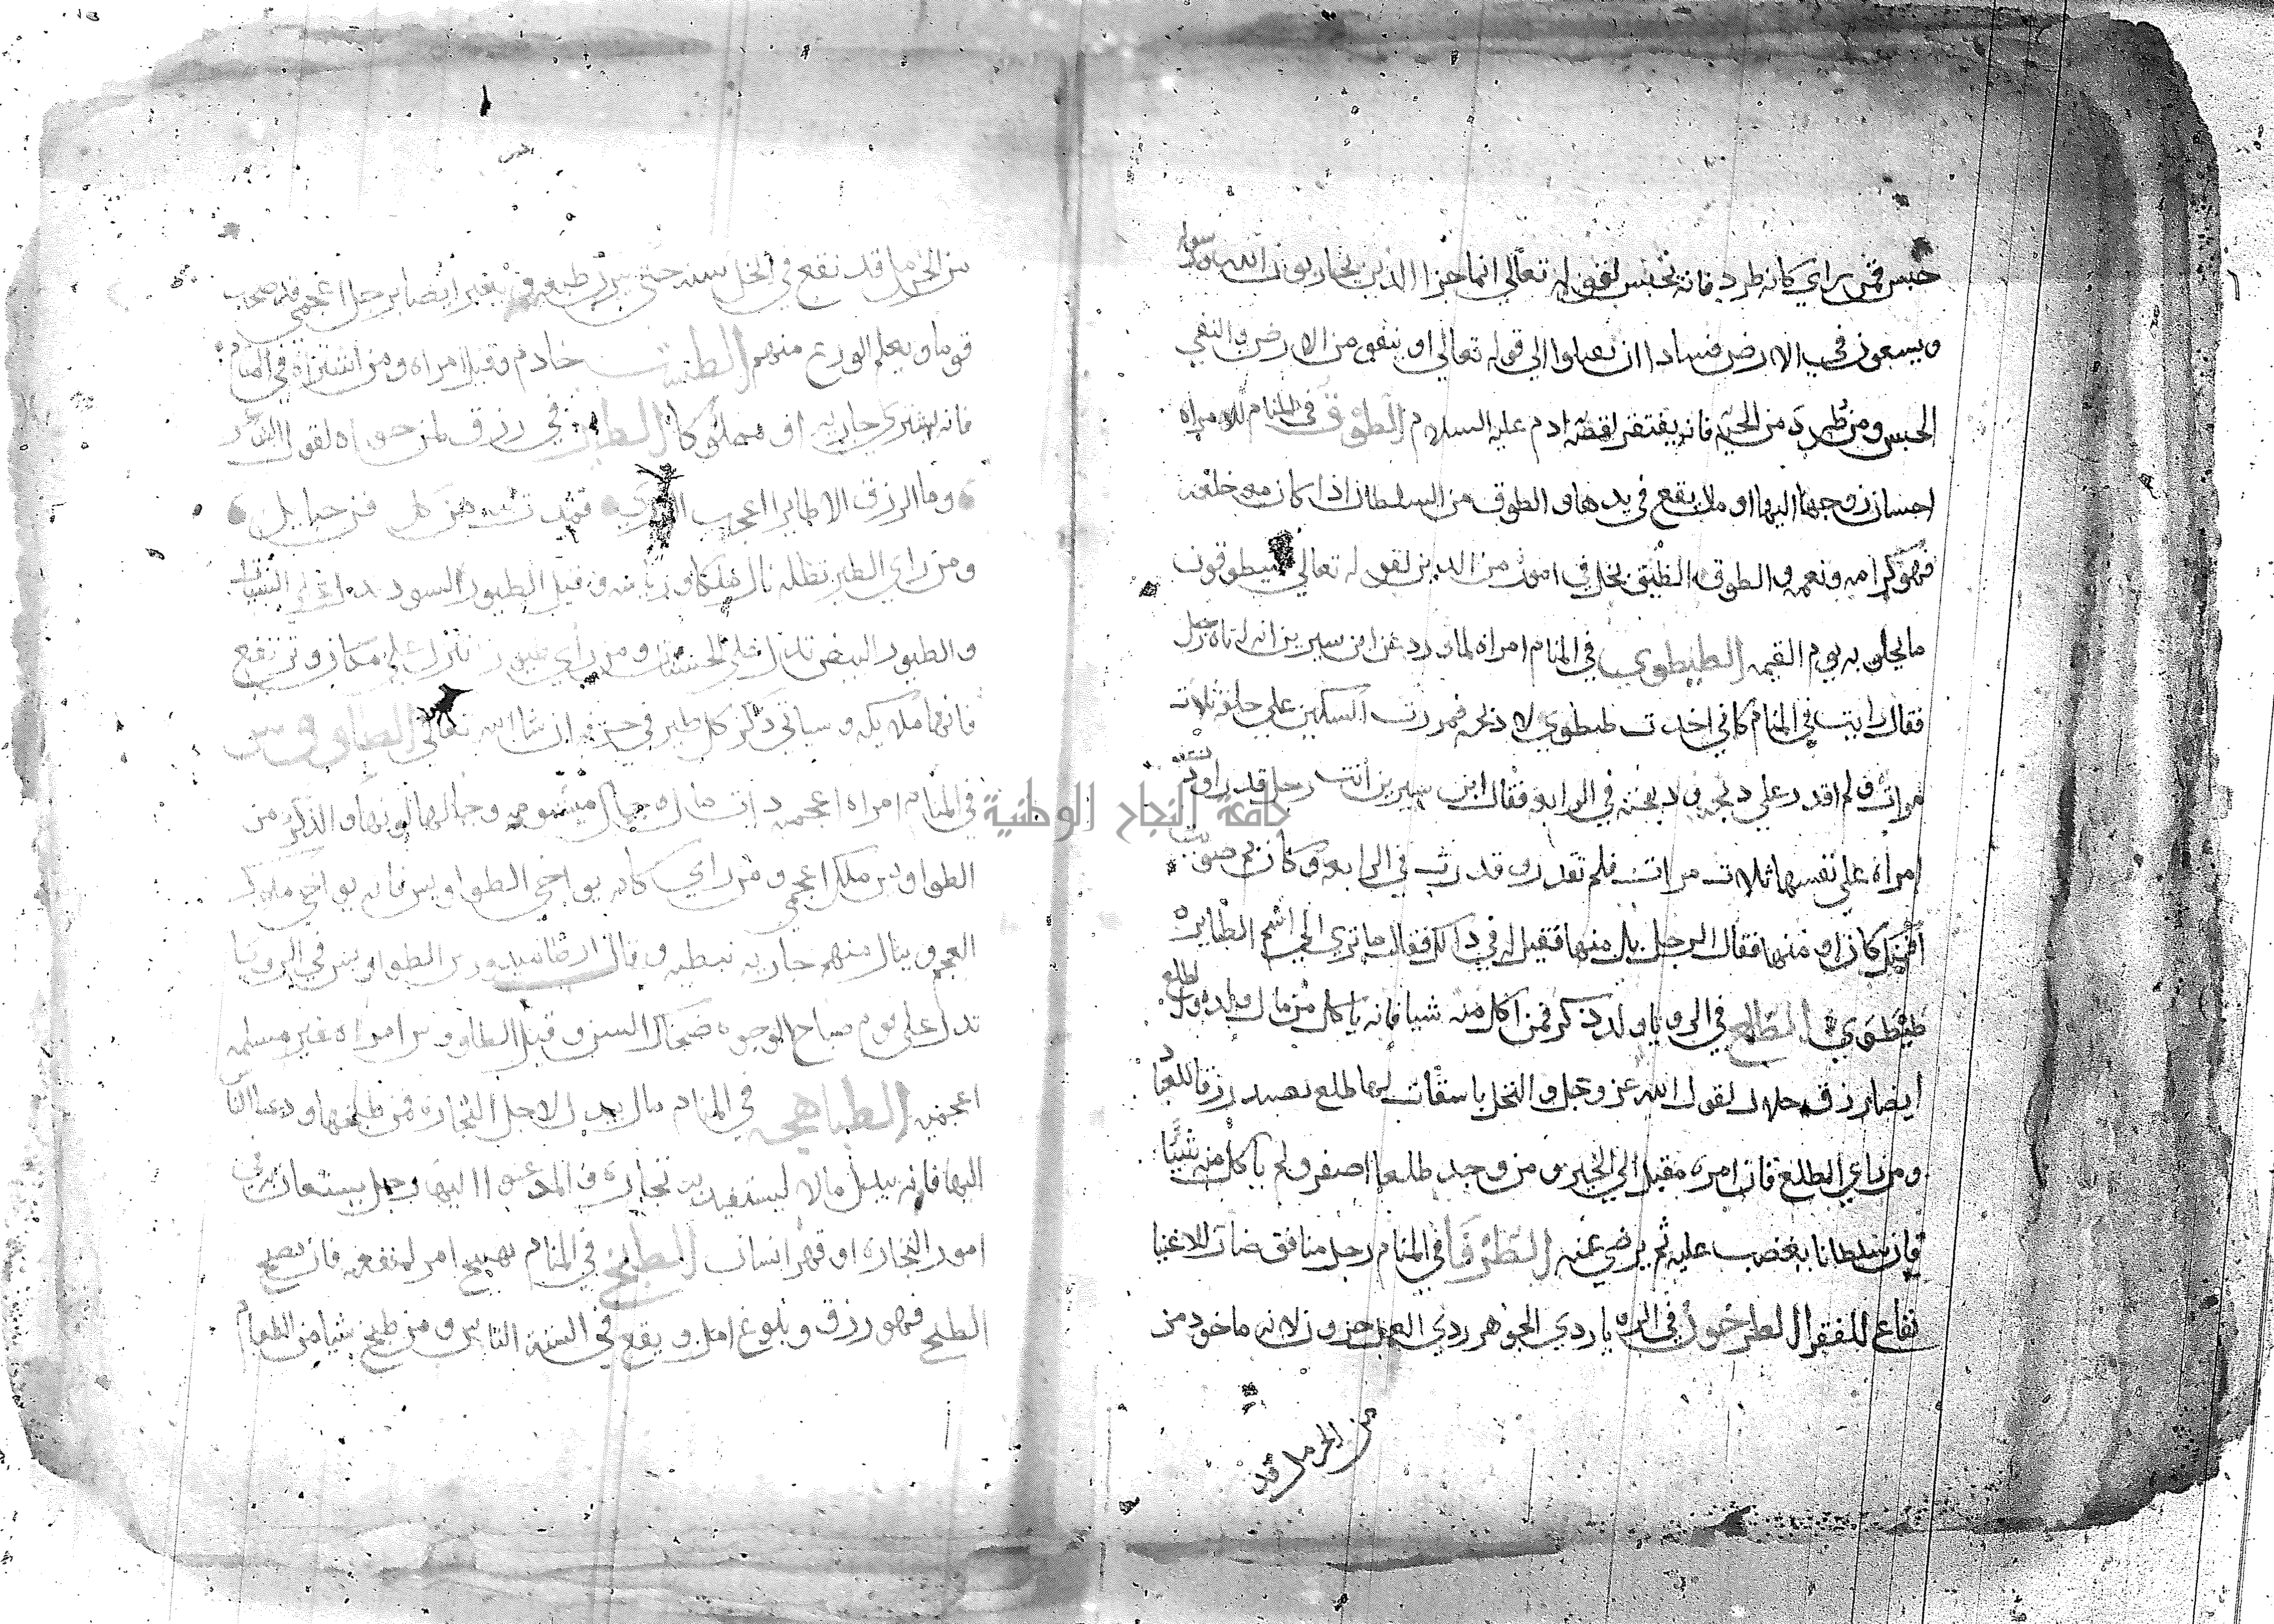 حبس فمن راي كانه طرد فانه يحبس لقوله تعالي انما جزا الذين يحاربون الله ورسوله
ويسعون في الارض فسادا ان يقتلوا الي قوله تعالي او ينفوا من الارض والنفي
الحبس ومن طرد من الجنة فانه يفتقر لقصة ادم عليه السلام الطوق في المنام للامراه
احسان زوجها اليها او مال يقع في يدها والطوق من السلطان اذا كان معه خلعة
فهو كرامه ونعمه والطوق الضيق بخل في امور من الدين لقوله تعالي سيطوقون
ما بخلو به يوم القيمه الطيطوي في المنام امراه لما ورد عن ابن سيرين انه اتاه رجل
فقال رايت في المنام كاني اخدت طيطوي لاذبحه فمررت السكين علي حلقه ثلاث
مرات ولم اقدر علي ذبحه وذبحته في الرابعه فقال ابن سيرين انت رجل قد راودت
امراه علي نفسها ثلاث مرات فلم تقدر وقدرت في الرابعه وكان ثم صويت
افمنك كان او منها فقال الرجل بل منها فقيل له في ذلك فقال ما تري الي اسم الطايره
طيطوي الطلع في الرويا ولد ذكر فمن اكل منه شيا فانه ياكل من مال ولده والطلع
ايضا رزق حلال لقول الله عز وجل والنخل باسقات لها طلع نضيد رزقا للعباد
ومن راي الطلع فان امره مقبل الي الخير ومن وجد طلعا اصفر ولم ياكل منه شيئا
فان سلطانا يغضب عليه ثم يرضي عنه الطرفا في المنام رجل منافق ضار للاغنيا
نفاع للفقرا الطرخون في الرويا ردي الجوهر ردي العمل حزون لانه ماخوذ من
من الحرمل قد
من الحرمل قد نقع في الخل سنه حتي يبرد طبعه ويعبر ايضا برجل اعجمي قد صحب
قوما ويعلم الورع منهم الطست خادم وقيل امراه ومن اشتراه في المنام
فانه يشتري جاريه او مملوكا الطير في رزق لمن حواه لقول الشاعر
وما الرزق الا طاير اعجب الوري فمدت له من كل فن حبايل
ومن راي الطير تظلله نال ملكا ورياسه وقيل الطيور السود تدل علي السيات
والطيور البيض تدل علي الحسنات ومن راي طيور تنزل علي مكان وترتفع
فانها ملايكه وسياتي ذكر كل طير في حرفه ان شا الله تعالي الطاووس
في المنام امراه اعجميه ذات مال وجمال ميشومه وجمالها لونها والذكر من
الطواويس ملك اعجمي ومن راي كانه يواخي الطواويس فانه يواخي ملوك
العجم وينال منهم جاريه نبطيه وقال ارطاميدورس الطواويس في الرويا
تدل علي قوم صباح الوجوه ضحاك السن وقيل الطاووس امراه غير مسلمه
اعجميه الطباهجه في المنام مال يبذل لاجل التجاره فمن طبخها ودعا الناس
اليها فانه يبذل مالا ليستفيد به تجاره والمدعو اليها رجل يستعان به في
امور التجاره او قهر انسان الطبخ في المنام تهييج امر لمنفعه فان نضج
الطبخ فهو رزق وبلوغ امل ويقع في السنة الناس ومن طبخ شيا من الطعام
جامعة النجاح الوطنية